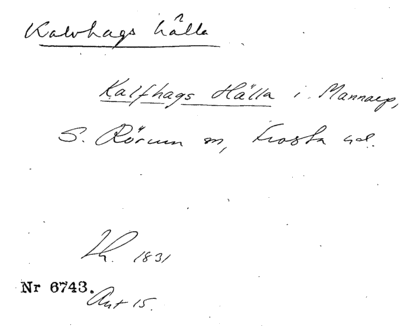 Kalvhags hälla
Kalfhags Hälla i Mannarp,
S. Rörum sn, Frosta hd.
Lh. 1831
Nr 6743.
Akt 15.